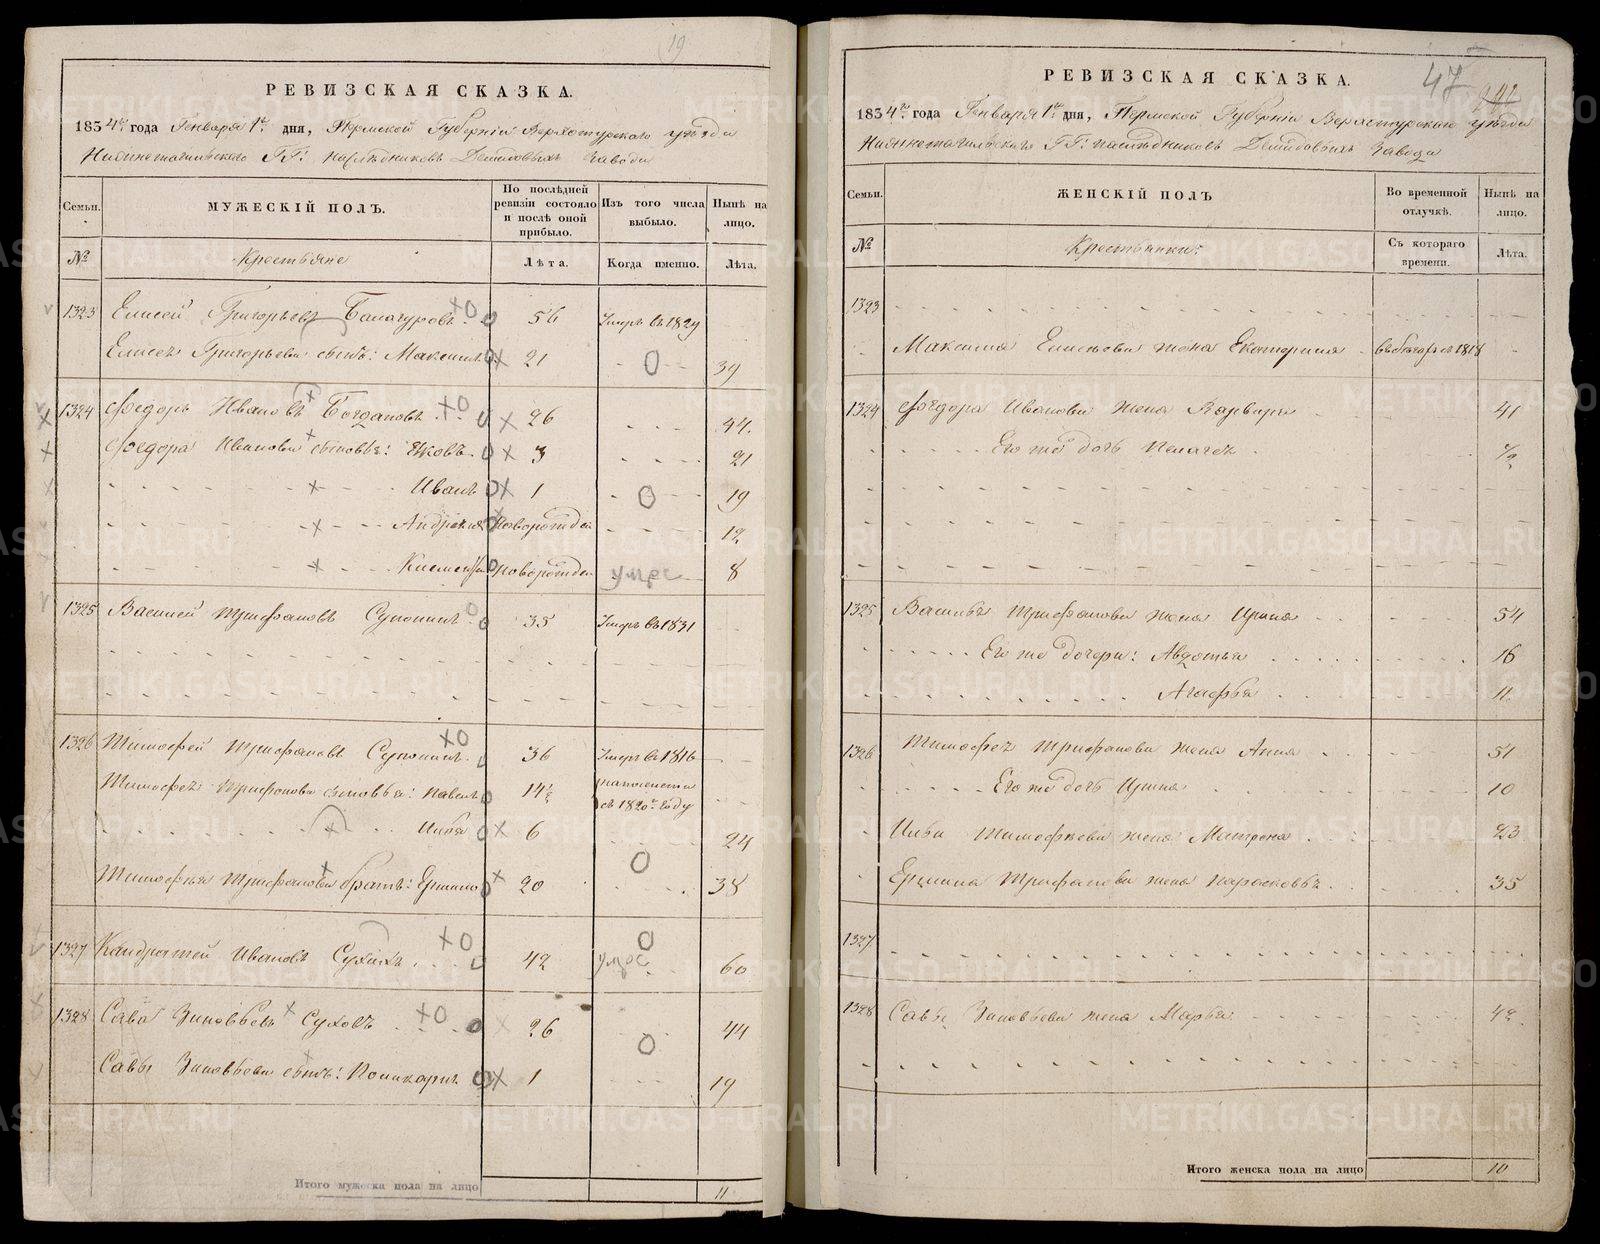 19
РЕВИЗСКАЯ СКАЗКА.
1834го года Генваря 1го дня, Пермской Губерніи Верхотурскаго уѣзда
Нижнетагильскаго ГГ: наслѣдниковъ Демидовыхъ завода
Семьи.
МУЖЕСКІЙ ПОЛЪ.
По послѣдней ревизіи состояло и послѣ оной прибыло.
Изъ того числа выбыло.
Нынѣ на лицо.
№
Крестьяне
Лѣта.
Когда именно.
Лѣта.
1323 Елисей Григорьевъ Балагуровъ 56 Умеръ въ 1829
Елисея Григорьева сынъ: Максимъ 21 39
1324 Федоръ Ивановъ Богдановъ 26 44.
Федора Иванова сыновья: Яковъ 3 21
Иванъ 1 19
Андрей новорожден 12
новорожден умре 8
1325 Василей Трифановъ 35 Умеръ въ 1831
1326 Тимофей Трифановъ 36 Умеръ въ 1816
Тимофея Трифанова сыновья: Павелъ 14½ въ 1820 году
Илья 6 24
Тимофея Трифанова братъ: Ермила 20 38
1327 Кандратей Ивановъ Сухихъ 42 умре 60
1328 Сава Зиновьевъ Суховъ 26 44
Савы Зиновьева сынъ: Поликарпъ 1 19
Итого мужеска пола на лицо 11
47
242
РЕВИЗСКАЯ СКАЗКА.
1834го года Генваря 1го дня, Пермской Губерніи Верхотурскаго уѣзда
Нижнетагильскаго ГГ: наслѣдниковъ Демидовыхъ завода
Семьи.
ЖЕНСКІЙ ПОЛЪ
Во временной отлучкѣ.
Нынѣ на лицо.
№
Крестьянки:
Съ котораго времени.
Лѣта.
1323
Максима Елисѣева жена Екатерина въ бѣгахъ съ 1818
1324 Федора Иванова жена Варвара 41
Его же дочь Пелагея ½
1325 Василья Трифанова жена Ирина 54
Его же дочери: Авдотья 16
Агафья 11
1326 Тимофея Трифанова жена Анна 51
Его же дочь Ирина 10
Ильи Тимофеева жена Матрена 23
Ермила Трифанова жена Парасковья 35
1327
1328 Савы Зиновьева жена Марья 42
Итого женска пола на лицо 10
METRIKI.GASO-URAL.RU